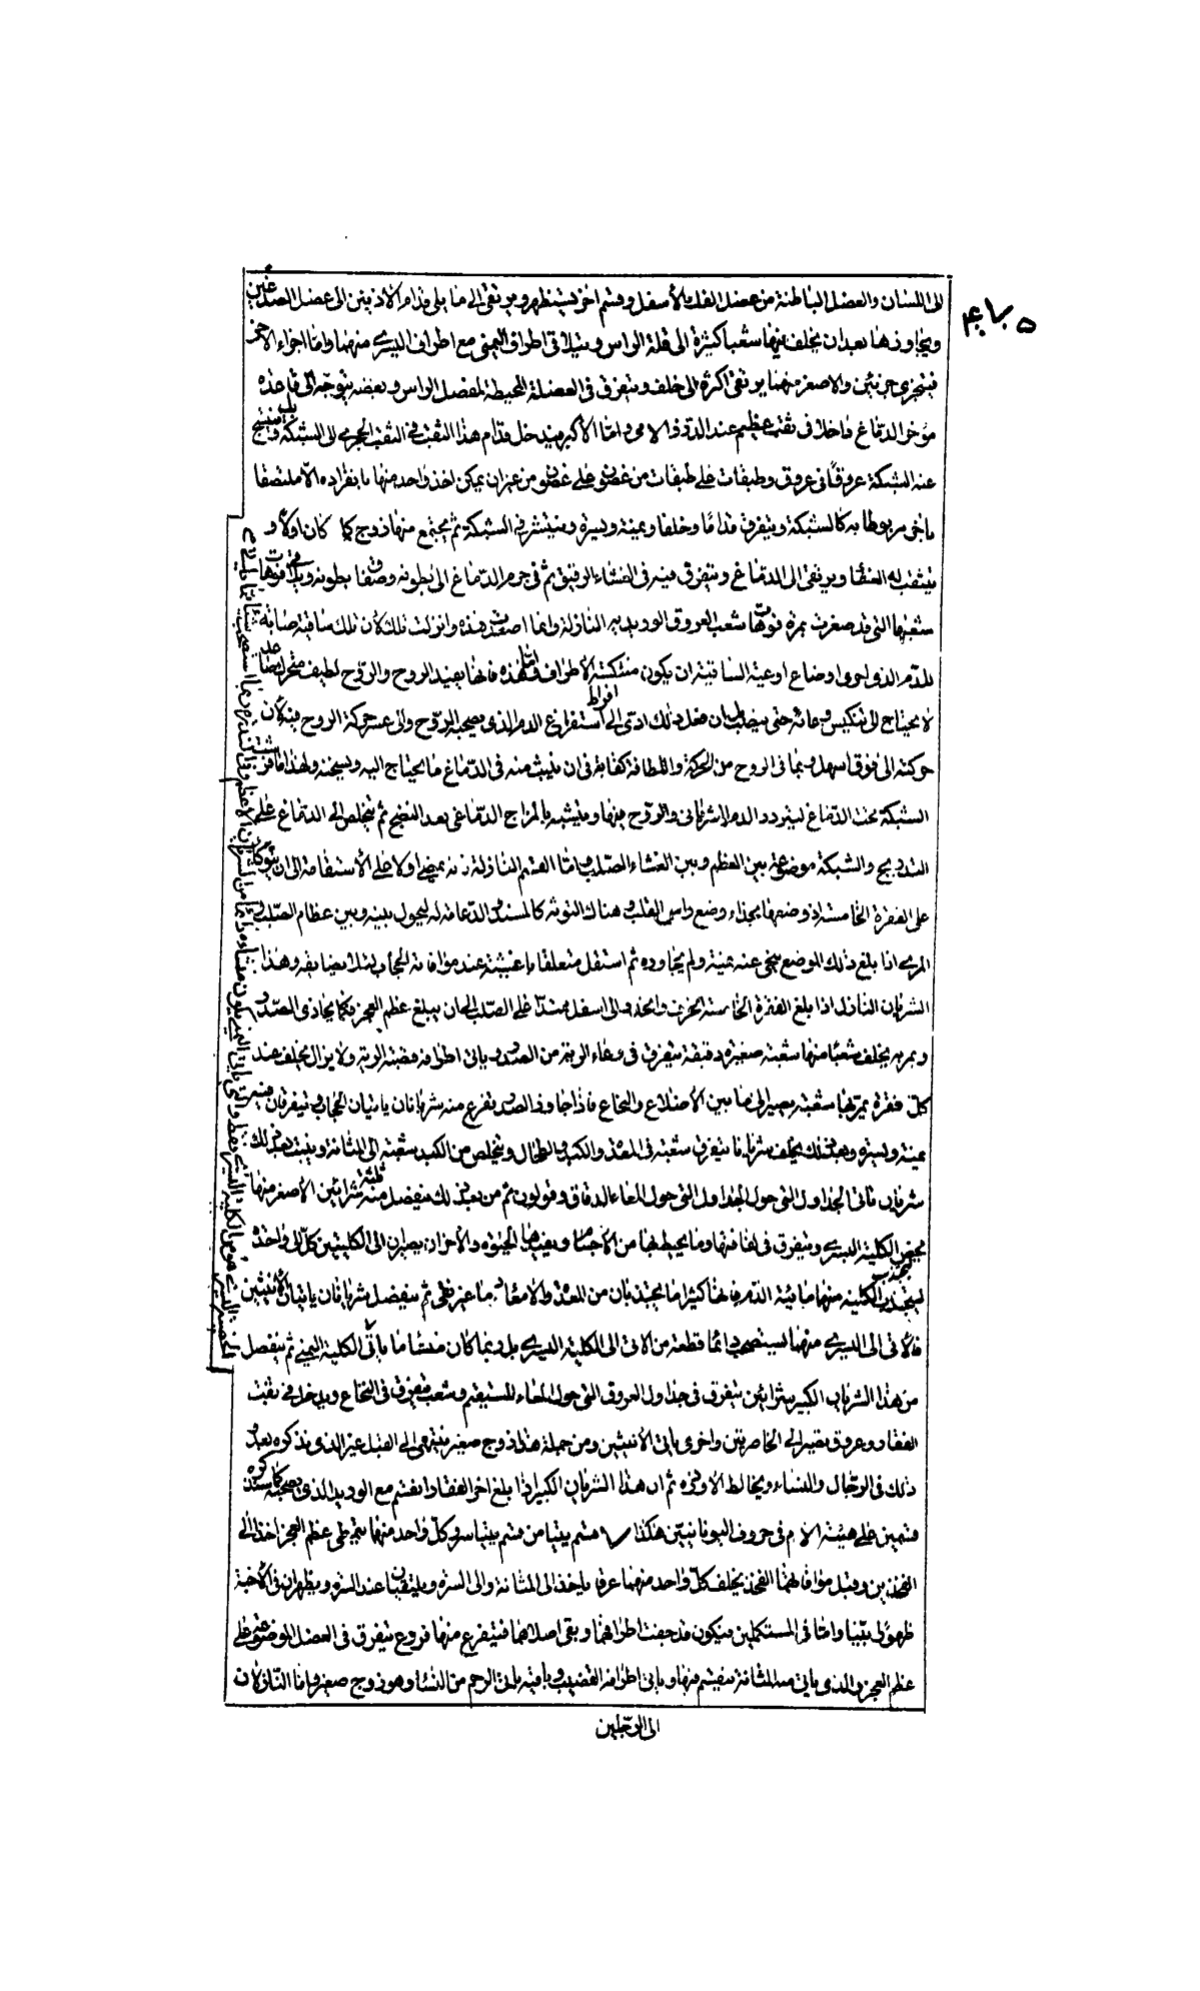 الى اللسان والعضل الباطنة من عضل الفك الأسفل وقسم اخر يستظهر ويرتقى الى ما يلى قدام الاذنين الى عضل الصدغين
ويجاوزها بعد ان يخلف فيها شعبا كثيرة الى قلة الراس ويتلاقى اطراف اليمنى مع اطراف اليسرى منهما واما اجزاء الاخر
فيتجزى جزئين والاصغر منهما يرتقى اكثره الى خلف ويتفرق فى العضلة المحيطة لمفصل الراس وبعضه يتوجه الى قاعدة
مؤخر الدماغ داخلا فى ثقب عظيم عند الدرز اللامى واما الاكبر فيدخل قدام هذا الثقب فى الثقب الحجرى الى الشبكة بل ينتسج
عنه الشبكة عروقا فى عروق وطبقات على طبقات من غضون على غضون من غير ان يمكن اخذ واحد منها بانفراده الا ملتصقا
باخر مربوطا به كالشبكة ويتفرق قداما وخلفا ويمنة ويسرة وينتشر فى الشبكة ثم يجتمع منها زوج كما كان اولا و
ينثقب له الغشاء ويرتقى الى الدماغ ويتفرق فيه فى الغشاء الرقيق ثم فى جرم الدماغ الى بطونه وصفاق بطونه ويلاقى فوهات
شعبها التى قد صغرت ثمرة فوهات شعب العروق الوريدية النازلة وانما اصعدت هذه وانزلت تلك لان تلك ساقية صابة
للدم الذى احرى اوضاع اوعية الساقية ان يكون منتكسة الاطراف واما هذه فانها ينفذ الروح والروح لطيف متحرك صاعد
لا يحتاج الى تنكيس وعائه حتى ينصب بل ان فعل ذلك ادى الى افراط استفراغ الدم الذى يصحبه الروح والى عسر حركة الروح فيه لان
حركته الى فوق اسهل وبما فى الروح من الحركة واللطافة كفاية فى ان ينبث منه فى الدماغ ما يحتاج اليه ويسخنه ولهذا ما فرشت
الشبكة تحت الدماغ ليتردد الدم الشريانى والروح فيها ويتشبه بالمزاج الدماغى بعد النضج ثم يتخلص الى الدماغ على
التدريج والشبكة موضوعة بين العظم وبين الغشاء الصلب واما القسم النازلة فانه يمضى اولا على الأستقامة الى ان يتوكأ
على الفقرة الخامسة اذ وضعها بحذاء وضع راس القلب وهناك التوثة كالمسند والدعامة له ليحول بينه وبين عظام الصلب و
المرى اذا بلغ ذلك الموضع تنحى عنه يمنة ولم يجاوره ثم استقل متعلقا باغشية عند موافاته الحجاب لئلا يضايقه وهذا
الشريان النازل اذا بلغ الفقرة الخامسة انحرف وانحدر الى اسفل ممتدا على الصلب الى ان يبلغ عظم العجز فكما يحاذى الصدر و
يمر به يخلف شعبا منها شعبة صغيرة دقيقة يتفرق فى وعاء الرية من الصدر وياتى اطرافه قصبة الرية ولا يزال يخلف عند
كل فقرة يمر بها شعبة يصير الى ما بين الأضلاع والنخاع فاذا جاوز الصدر تفرع منه شريانان ياتيان الحجاب ويتفرقان فيه
يمنة ويسرة وبعد ذلك يخلف شريانا يتفرق شعبه فى المعدة والكبد والطحال ويتخلص من الكبد شعبة الى المثانة وينبت بعد ذلك
شريان ياتى الجداول التى حول المعاء الدقاق وقولون ثم من بعد ذلك ينفصل منه ثلثة شرائين الأصغر منها
يخص الكلية اليسرى ويتفرق فى لفائفها وما يحيط بها من الأجسام ويفيدها الحيوة والأخران يصيران الى الكليتين كل الى واحدة
ليجتذب الكلية منهما مائية الدم فانهما كثيرا ما يجتذبان من المعدة والامعاء دما غير نقى ثم ينفصل شريانان ياتيان الأنثيين
فالاتى الى اليسرى منهما يستصحب دائما قطعة من الاتى الى الكلية اليسرى بل ربما كان منشا ما ياتى الكلية اليمنى ثم ينفصل
من هذا الشريان الكبير شرائين يتفرق فى جداول العروق التى حول المعاء المستقيم وشعب يتفرق فى النخاع ويدخل فى ثقب
الفقار وعروق تصير الى الخاصرتين واخرى ياتى الأنثيين ومن جملة هذا زوج صغير ينتهى الى القبل غير الذى نذكره بعد و
ذلك فى الرجال والنساء ويخالط الأوردة ثم ان هذا الشريان الكبير اذا بلغ اخر الفقار انقسم مع الوريد الذى يصحبه كما سنذكره
قسمين على هيئة اللام فى حروف اليونانيين هكذا ٨ قسم يتيامن وقسم يتياسر وكل واحد منهما يمتطى عظم العجز اخذا الى
الفخذين وقبل موافاتهما الفخذ يخلف كل واحد منهما عرقا ياخذ الى المثانة والى السرة ويلتقيان عند السرة ويظهران فى الأجنة
ظهورا بينا واما فى المستكملين فيكون قد جفت اطرافهما وبقى اصلاهما فيتفرع منهما فروع يتفرق فى العضل الموضوعة على
عظم العجز والذى ياتى منه المثانة ينقسم فيها وياتى اطرافه القضيب وباقيه ياتى الرحم من النساء وهو زوج صغير واما النازلان
الى الرجلين